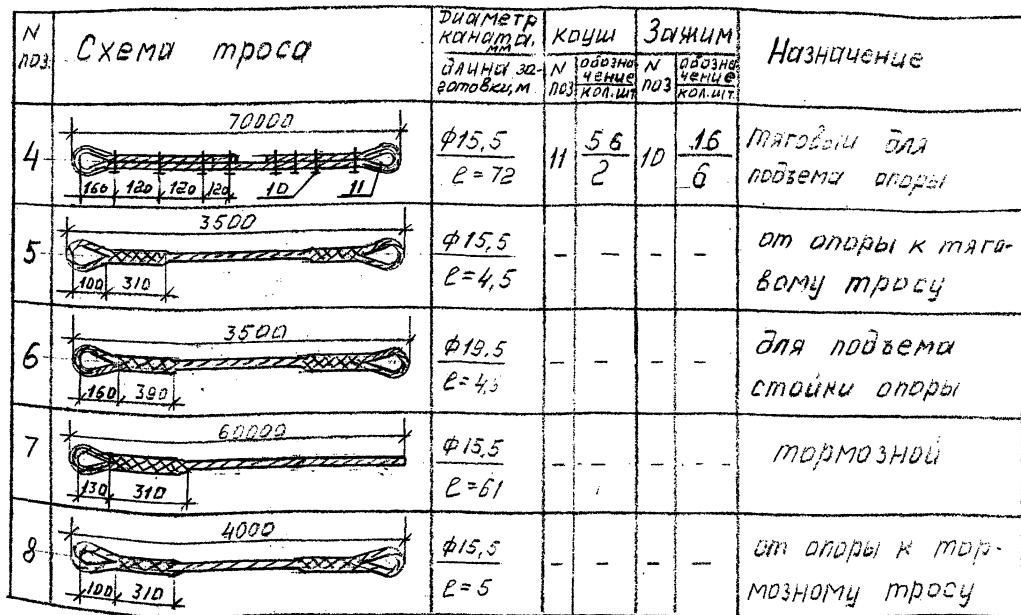 N поз.
Схема троса
Диаметр каната, мм
длина заготовки, м
коуш
N поз
обозначение
кол. шт
Зажим
N поз
обозначение
кол. шт.
Назначение
4
70000
160 120 120 120 10 11
ф15,5
ℓ=72
11
56
2
10
16
6
тяговый для
подъема опоры
5
3500
100 310
ф15,5
ℓ=4,5
– – – –
от опоры к тяго-
вому тросу
6
3500
160 390
ф19,5
– – – –
для подъема
стойки опоры
7
60000
130 310
ф15,5
ℓ=61
– – – –
тормозной
8
4000
100 310
ф15,5
ℓ=5
– – – –
от опоры к тор-
мозному тросу